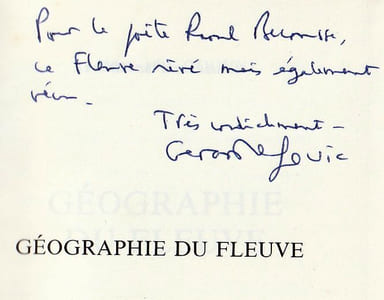 Pour le poète Raoul Bécousse,
ce Fleuve rêvé mais également
vécu –
Très cordialement –
Gérard le Gouic
GÉOGRAPHIE
DU FLEUVE
GÉOGRAPHIE DU FLEUVE